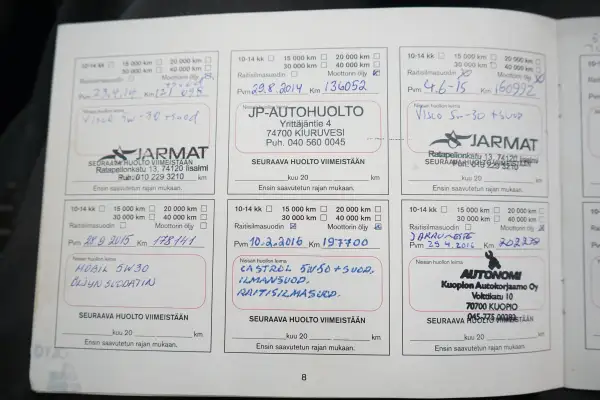 10-14 kk 15 000 km 20 000 km
30 000 km 40 000 km
Raitisilmasuodin Moottorin öljy
Pvm 23.4.14 Km
Nissan huollon leima
Visco 5w-30 + suod
JARMAT
Ratapellonkatu 13, 74120 Iisalmi
Puh. 010 229 3210
SEURAAVA HUOLTO VIIMEISTÄÄN
kuu 20 km
Ensin saavutetun rajan mukaan.
10-14 kk 15 000 km 20 000 km
30 000 km 40 000 km
Raitisilmasuodin Moottorin öljy
Pvm 29.8.2014 Km 136052
Nissan huollon leima
JP-AUTOHUOLTO
Yrittäjäntie 4
74700 KIURUVESI
Puh. 040 560 0045
SEURAAVA HUOLTO VIIMEISTÄÄN
kuu 20 km
Ensin saavutetun rajan mukaan.
10-14 kk 15 000 km 20 000 km
30 000 km 40 000 km
Raitisilmasuodin Moottorin öljy
Pvm 4.6-15 Km 160992
Nissan huollon leima
Visco 5w-30 + suod
JARMAT
Ratapellonkatu 13, 74120 Iisalmi
Puh. 010 229 3210
SEURAAVA HUOLTO VIIMEISTÄÄN
kuu 20 km
Ensin saavutetun rajan mukaan.
10-14 kk 15 000 km 20 000 km
30 000 km 40 000 km
Raitisilmasuodin Moottorin öljy
Pvm 28.9 2015 Km 178141
Nissan huollon leima
MOBIL 5W30
ÖLJYNSUODATIN
SEURAAVA HUOLTO VIIMEISTÄÄN
kuu 20 km
Ensin saavutetun rajan mukaan.
10-14 kk 15 000 km 20 000 km
30 000 km 40 000 km
Raitisilmasuodin Moottorin öljy
Pvm 10.2.2016 Km 197700
Nissan huollon leima
CASTROL 5W30 + SUOD.
ILMANSUOD.
RAITISILMASUOD.
SEURAAVA HUOLTO VIIMEISTÄÄN
kuu 20 km
Ensin saavutetun rajan mukaan.
10-14 kk 15 000 km 20 000 km
30 000 km 40 000 km
Raitisilmasuodin Moottorin öljy
JARRUNESTE
Pvm 25.4.2016 Km
Nissan huollon leima
AUTONOMI
Kuopion Autokorjaamo Oy
Volttikatu 10
70700 KUOPIO
SEURAAVA HUOLTO VIIMEISTÄÄN
kuu 20 km
Ensin saavutetun rajan mukaan.
8